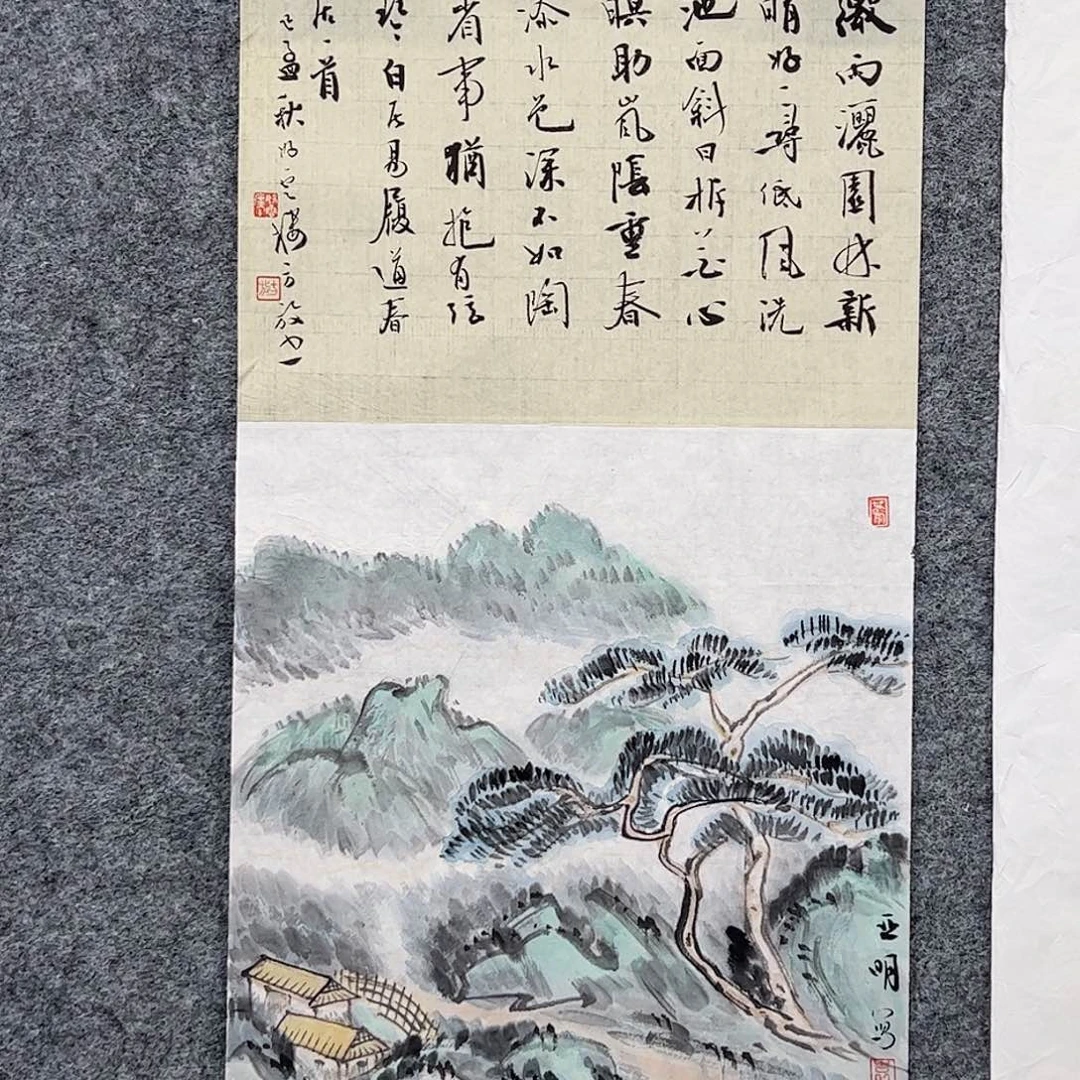 微雨灑園林新
晴好一尋低風洗
池面斜日拆花心
暝助嵐陰重春
添水色深不如陶
省事猶抱有弦
琴白居易履道春
居一首
巳孟秋 樓方放
亚明写